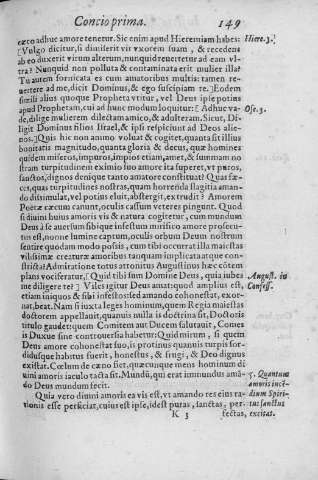 Concio prima. 149
cæco adhuc amore tenetur. Sic enim apud Hieremiam habes: Hiere.3.
[Vulgo dicitur, si dimiserit vir vxorem suam, & recedens
ab eo duxerit virum alterum, nunquid reuertetur ad eam vl-
tra? Nunquid non polluta & contaminata erit mulier illa?
Tu autem fornicata es cum amatoribus multis: tamen re-
uertere ad me, dicit Dominus, & ego suscipiam te.] Eodem
simili alius quoque Propheta vtitur, vel Deus ipse potius
apud Prophetam, cui ad hunc modum loquitur: [Adhuc va- Ose.3.
de, dilige mulierem dilectam amico, & adulteram. Sicut, Di-
ligit Dominus filios Israel, & ipsi respiciunt ad Deos alie-
nos.] Quis hic non animo voluat & cogitet, quanta sit illius
bonitatis magnitudo, quanta gloria & decus, quæ homines
quidem miseros, impuros, impios etiam, amet, & summam no
stram turpitudinem eximio suo amore ita superet, vt puros,
sanctos, dignos denique tanto amatore constituat? Quas fæ-
ces, quas turpitudines nostras, quam horrenda flagitia aman-
do dissimulat, vel potius eluit, abstergit, extrudit? Amorem
Poetæ cæcum canunt, oculis cassum veteres pingunt. Quod
si diuini huius amoris vis & natura cogitetur, cum mundum
Deus à se auersum sibique infestum mirifico amore prosecu-
tus est, nonne lumine captum, oculis orbum Deum nostrum
sentire quodam modo possis, cum tibi occurrat illa maiestas
vilissimæ creaturæ amoribus tanquam implicata atque con-
stricta? Admiratione totus attonitus Augustinus hæc cótem
plans vociferatur, [Quid tibi sum Domine Deus, quia iubes August. in
me diligere te?] Viles igitur Deus amat: quod amplius est, Confess.
etiam iniquos & sibi infestos: sed amando cohonestat, exor-
nat, beat. Nam si iuxta leges humanas, quem Regia maiestas
doctorem appellauit, quanuis nulla is doctrina sit, Doctoris
titulo gaudet: quem Comitem aut Ducem salutauit, Comes
is Duxue sine controuersia habetur: Quid mirum, si quem
Deus amore cohonestat suo, is protinus quanuis turpis sor-
didusque habitus fuerit, honestus, & frugi, & Deo dignus
existat. Cœlum de cæno fiet, quæcunque mens hominum di
uini amoris iaculo tacta sit. Mundũ, qui erat immundus amã- 5. Quantum
do Deus mundum fecit. amoris incẽ-
Quia vero diuini amoris ea vis est, vt amando res eius ra- dium Spiri-
tionis esse perficiat, cuius est ipse, idest puras, sanctas, per- tus sanctus
K 3 fectas, excitas.